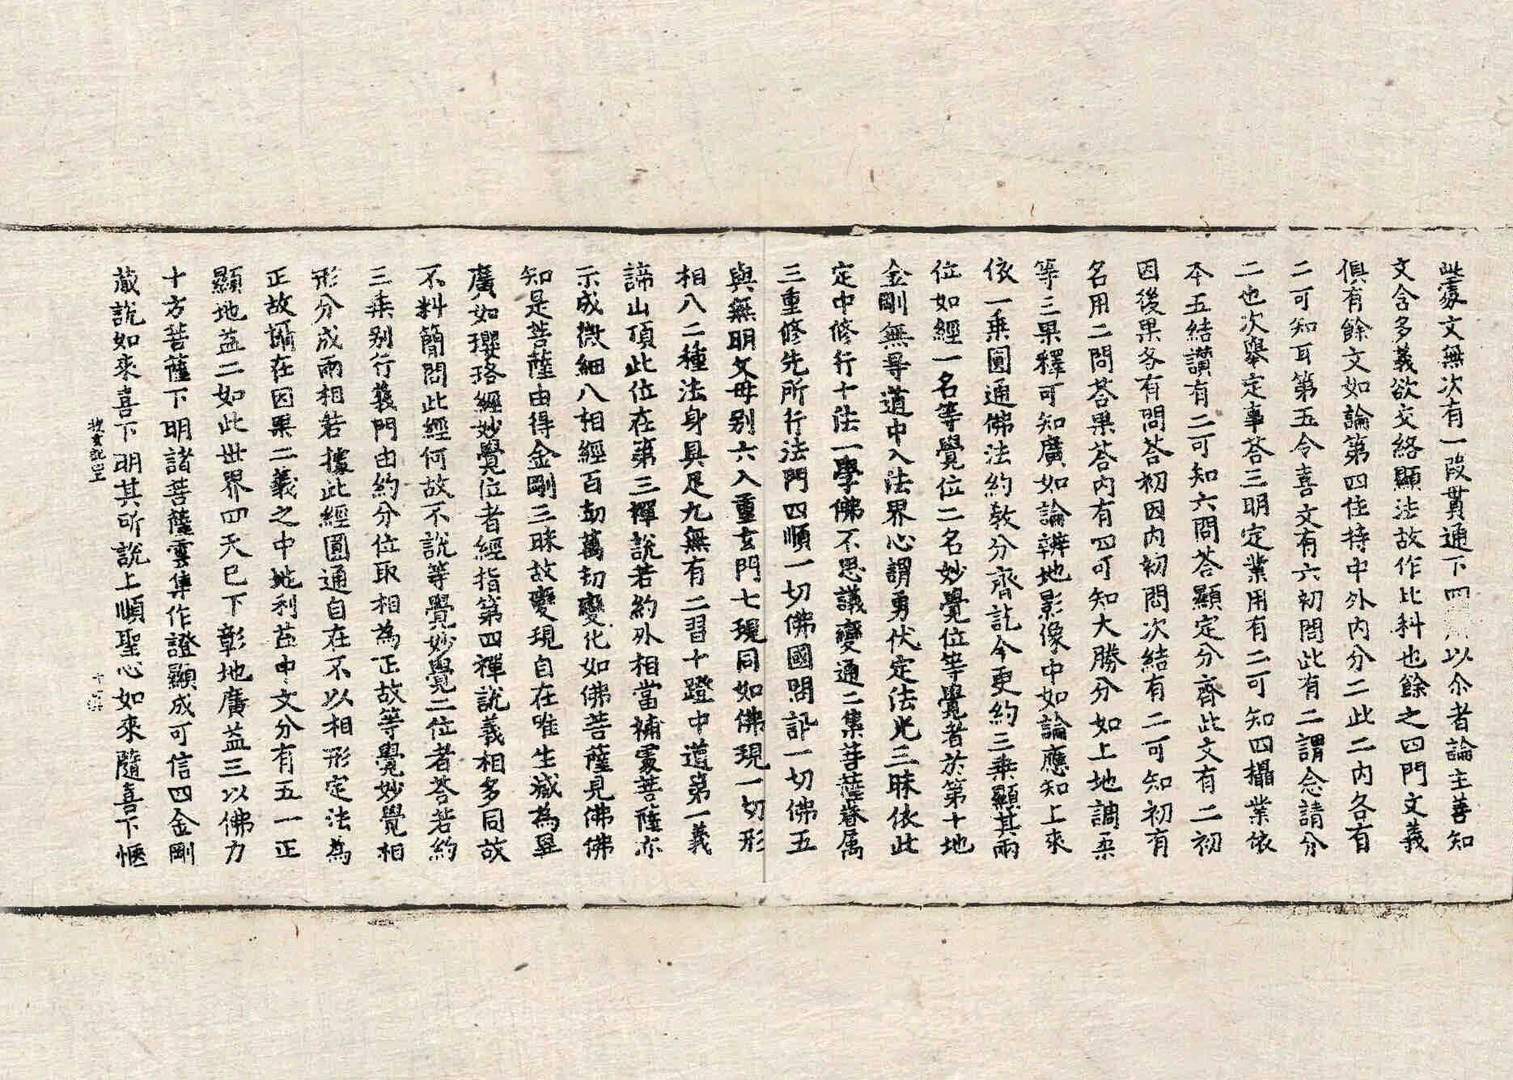 此蒙文無次有一段貫通下四以尒者論主善知
文含多義欲交絡顯法故作比科也餘之四門文義
俱有餘文如論第四住持中外内分二此二内各有
二可知耳第五令喜文有六初問此有二謂念請分
二也次舉定事答三明定業用有二可知四攝業依
本五結讃有二可知六問荅顯定分齊此文有二初
因後果各有問荅初因内初問次結有二可知初有
名用二問荅果荅内有四可知大勝分如上地調柔
等三果釋可知廣如論辨地影像中如論應知上來
依一乗圓通佛法約教分齊訖今更約三乗顯其兩
位如經一名等覺位二名妙覺位等覺者於第十地
金剛無㝵道中入法界心謂勇伏定法光三昧依此
定中修行十法一學佛不思議變通二集菩薩眷属
三重修先所行法門四順一切佛國問訊一切佛五
與無明父母别六入重玄門七現同如佛現一切形
相八二種法身具足九無有二習十登中道第一義
諦山頂此位在第三禪說若約外相當補處菩薩亦
示成微細八相經百劫萬劫變化如佛菩薩見佛佛
知是菩薩由得金剛三昧故變現自在唯生滅為異
廣如瓔珞經妙覺位者經指第四禪說義相多同故
不料簡問此經何故不說等覺妙覺二位者荅若約
三乗别行義門由約分位取相為正故等覺妙覺相
形分成兩相若據此經圓通自在不以相形定法為
正故攝在因果二義之中地利益中文分有五一正
顯地益二如此世界四天已下彰地廣益三以佛力
十方菩薩下明諸菩薩雲集作證顯成可信四金剛
藏說如來喜下明其所說上順聖心如來隨喜下愜